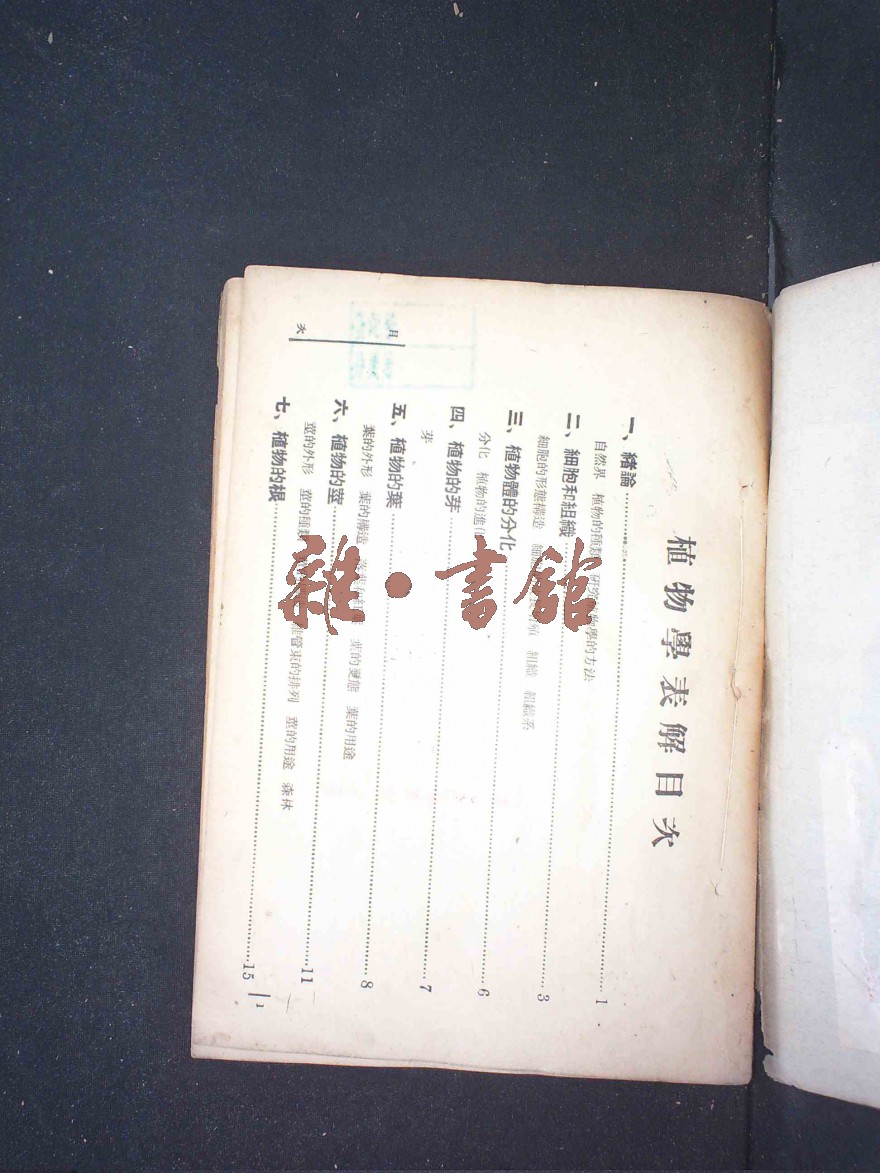 植物學表解目次
一、緒論……1
自然界 植物的種類 研究植物學的方法
二、細胞和組織……3
細胞的形態構造 組織 組織系
三、植物體的分化……6
分化 植物的進化
四、植物的芽……7
芽
五、植物的葉……8
葉的外形 葉的構造 葉的變態 葉的用途
六、植物的莖……11
莖的外形 莖的種類 維管束的排列 莖的用途 森林
七、植物的根……15
目次
1
雜·書館